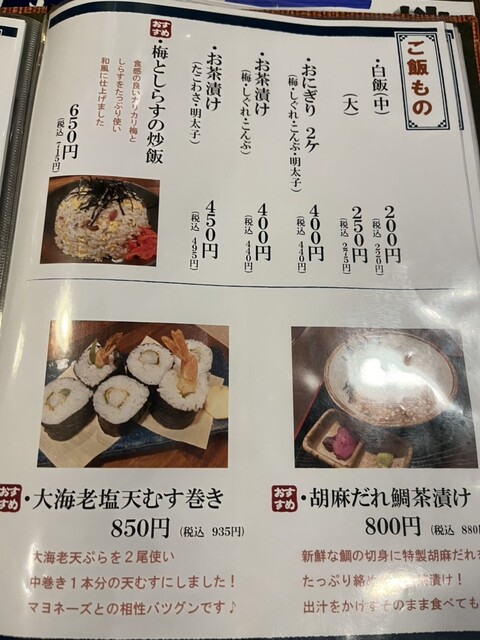 ご飯もの
・白飯(中)
200円
(税込 220円)
(大)
250円
(税込 275円)
・おにぎり 2ケ
(梅・しぐれ・こんぶ・明太子)
400円
(税込 440円)
・お茶漬け
(梅・しぐれ・こんぶ)
400円
(税込 440円)
・お茶漬け
(たこわさ・明太子)
450円
(税込 495円)
おすすめ
・梅としらすの炒飯
食感の良いカリカリ梅と
しらすをたっぷり使い
和風に仕上げました
650円
(税込 715円)
おすすめ
・大海老塩天むす巻き
850円 (税込 935円)
大海老天ぷらを2尾使い
中巻き1本分の天むすにしました!
マヨネーズとの相性バツグンです♪
おすすめ
・胡麻だれ鯛茶漬け
800円 (税込 880
新鮮な鯛の切身に特製胡麻だれ
たっぷり絡め 茶漬け!
出汁をかけずそのまま食べても